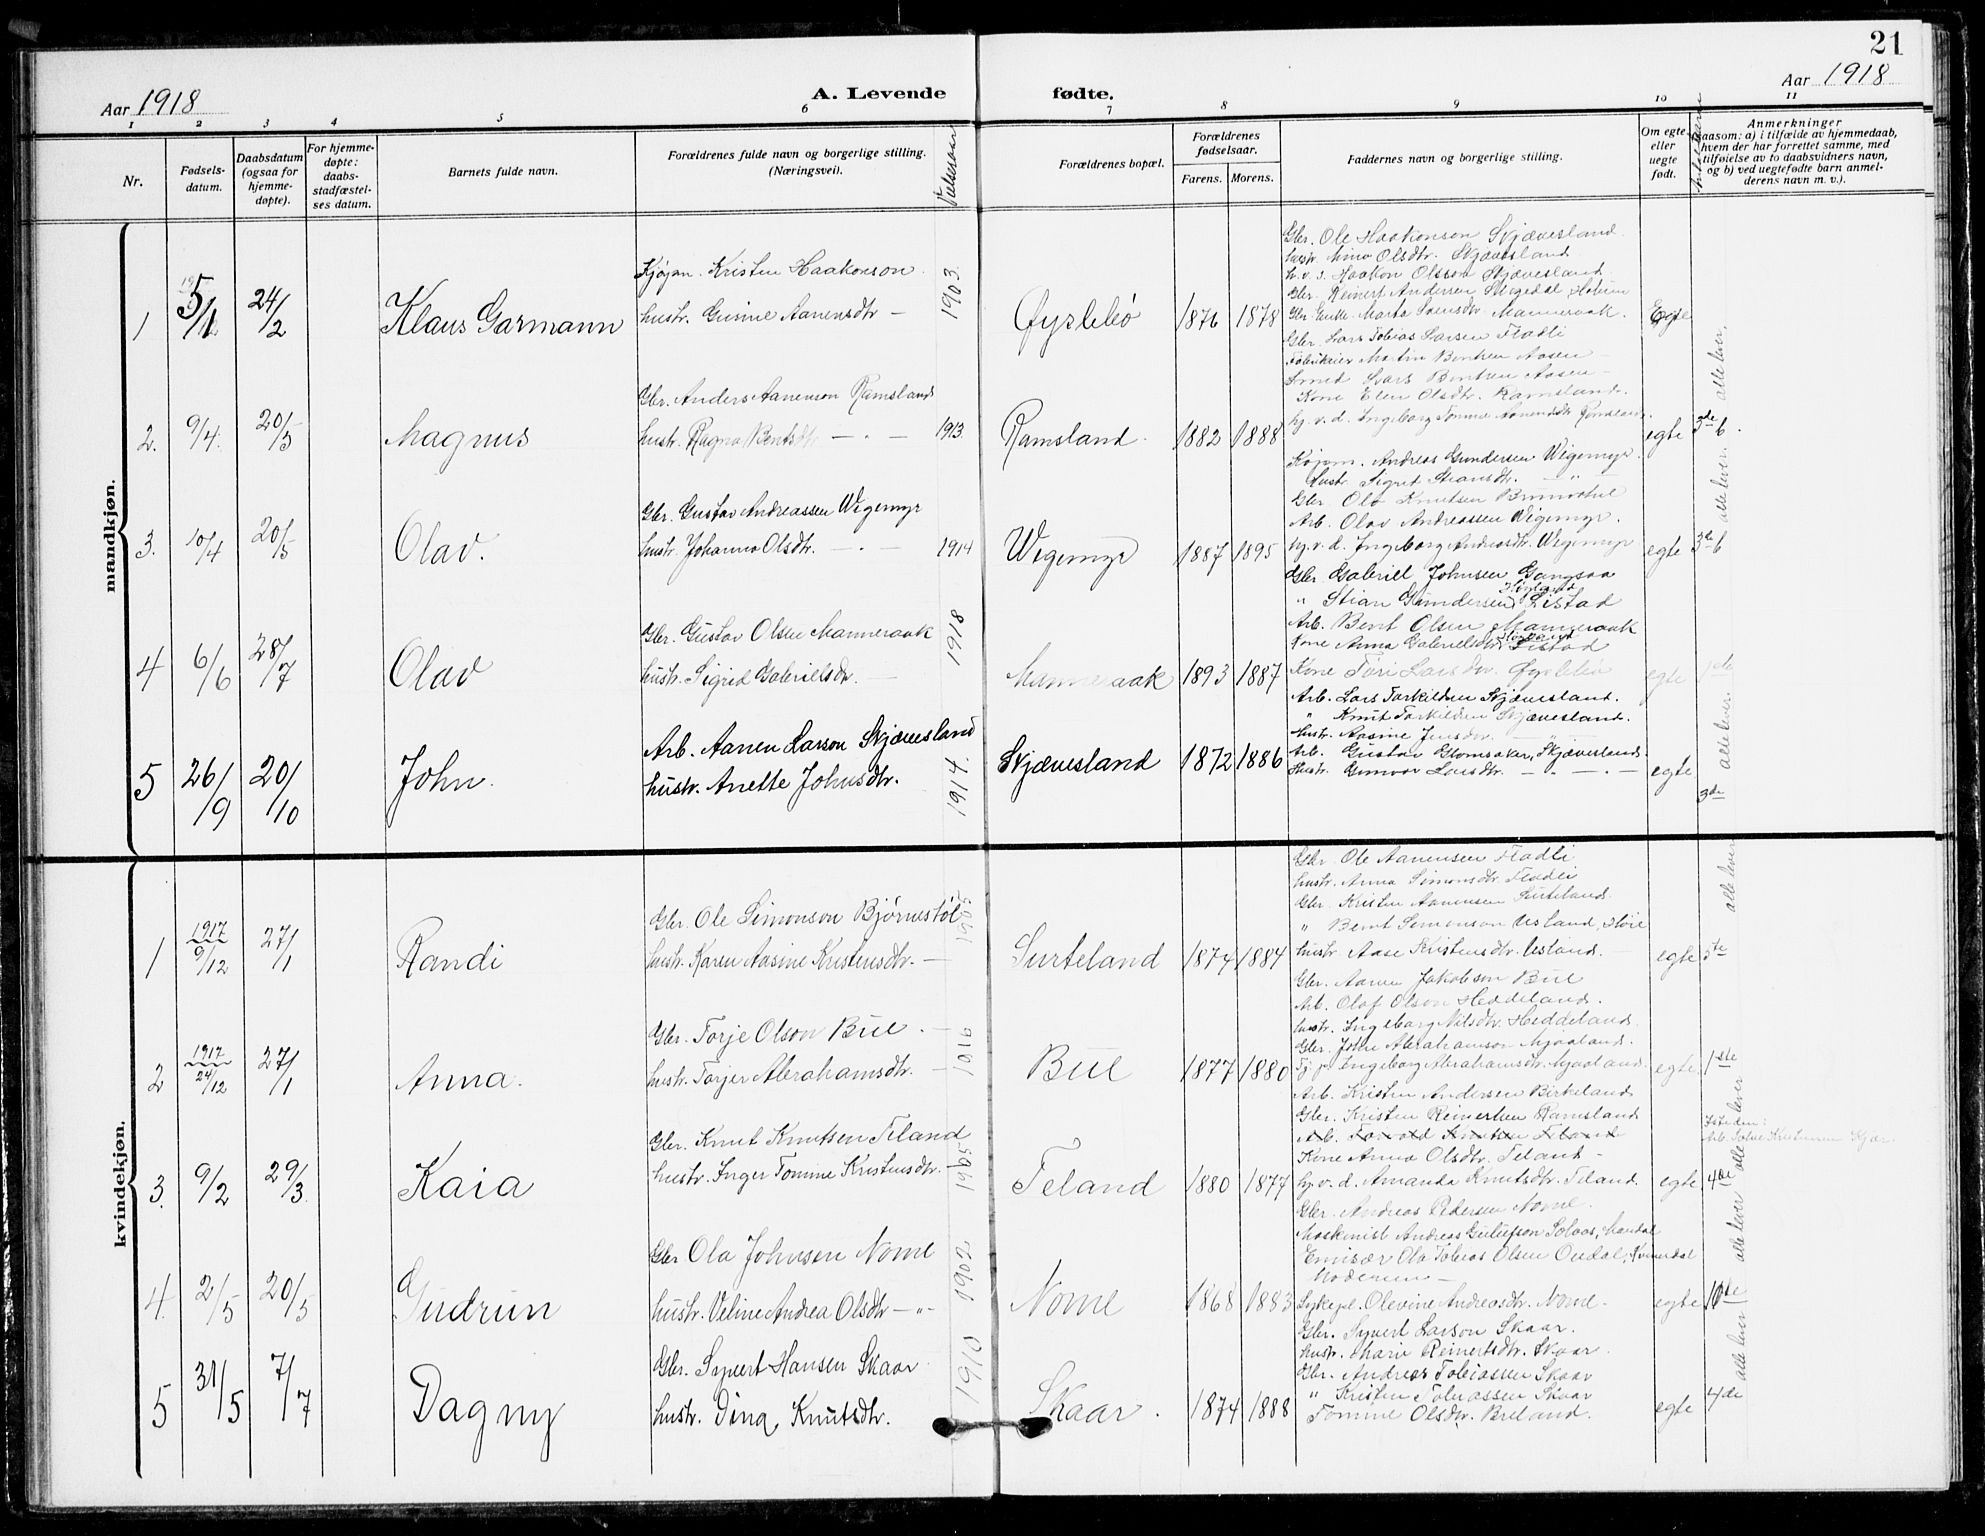 21
Aar 1918
A. Levende fødte.
Aar 1918
1 2 3 4 5 6 7 8 9 10 11
Nr.
Fødsels-
datum.
Daabsdatum
(ogsaa for
hjemme-
døpte).
For hjemme-
døpte:
daabs-
stadfæstel-
ses datum.
Barnets fulde navn.
Forældrenes fulde navn og borgerlige stilling.
(Næringsvei).
Forældrenes bopæl.
Forældrenes
fødselsaar.
Farens. Morens.
Faddernes navn og forretning stilling.
Om egte
eller
uegte
født.
Anmerkninger
saasom: a) i tilfælde av hjemmedaab,
hvem der har forrettet samme, med
tilføielse av to daabsvidners navn,
og b) ved uegtefødte barn anmel-
derens navn m. v.).
mandkjøn.
1 24/2 Klaus Garmann
Kristen Haakonson
hustr. Gunne Aanensdtr —
1903 Øyslebø 1876 1878
Gbr. Ole Haakonson Skjævesland
hustr. Olsdtr. Skjævesland
Haakon Olsson Skjævesland
Gbr. Reinert Andersen
Marta Manneraak.
Egte
2. 9/4 20/5 Magnus
Gbr. Anders Aanenson Ramsland
hustr. Ragna Bentsdtr — „ —
1913 Ramsland. 1882 1888
Gbr. Lars Tobias Larsen Fladli
Martin Bentsen Aasen
Smed Lars Bentsen Aasen
Kone Elen Olsdtr. Ramsland.
egte 3de alle lever.
3. 10/4 20/5 Olav.
Gbr. Gustav Andreassen Wigemyr
hustr. Johanna Olsdtr. — „ —
1914 Wigemyr 1887 1895
Andreas Gundersen Wigemyr
hustr. Sigrid
Gbr. Ola Knutsen
Arb. Olav Andreassen Wigemyr.
Ingeborg Andreasdtr. Wigemyr
egte 3de alle lever.
4 6/6 28/7 Olav
Gbr. Gustav Olsen Manneraak
hustr. Sigrid Gabrielsdtr. —
1918 Manneraak 1893 1887
Gbr. Gabriel Johnsen
„ Stian Gundersen
Arb. Bent Olsen Manneraak
Kone Anna Gabrielsdtr.
Kone Tori Larsdtr. Øyslebø
egte 1ste
5 26/9 20/10 John.
Arb. Aanen Larson Skjævesland
hustr. Anette Johnsdtr.
1914. Skjævesland 1872 1886
Arb. Lars Torkildsen Skjævesland.
„ Knut Torkildsen Skjævesland.
hustr. Aasine Jensdtr. — „ —
Arb. Gustav Glomsaker, Skjævesland
hustr. Gunvor Larsdtr. — „ —
egte 3de alle lever
kvindekjøn.
1 1917 9/12 27/1 Randi
Gbr. Ole Simonson Bjørnestøl
hustr. Karen Aasine Kristensdtr. —
1905 Surteland 1874 1884
Gbr. Ole Aanensen Fladli
hustr. Anna Simonsdtr. Fladli
Gbr. Kristen Aanensen Surteland.
„ Bent Simonson Usland,
hustr. Aase Kristensdtr. Usland. —
egte 5te alle lever
2 1917 24/12 27/1 Anna.
Gbr. Torje Olson Bue. —
hustr. Torjer Abrahamsdtr. —
1916 Bue 1877 1880
Gbr. Aanen Jakobson Bue
Arb. Olaf Olson Heddeland.
hustr. Ingeborg Nilsdtr. Heddeland.
Gbr. John Abrahamson
Ingeborg Abrahamsdtr.
egte 1ste
3. 9/2 29/3. Kaia
Gbr. Knut Knutsen Feland
hustr. Inger Tomine Kristensdtr.
1905 Feland 1880 1877
Arb. Kristen Andersen Birkeland
Gbr. Kristen Reinertsen Ramsland
Kone Anna Olsdtr. Feland —
Amanda Knutsdtr. Feland.
egte 4de alle lever
4. 2/5 20/5 Gudrun
Gbr Ola Johnsen Nome
hustr. Veline Andrea Olsdtr — „ —
1902 Nome 1868 1883
Gbr. Andreas Pedersen Nome.
Maskinist Andreas Mandal
Emisær Ola Tobias Olsen
Moderen —
Sykepl. Olevine Andreasdtr. Nome.
egte 10de alle lever
5 31/5 7/7 Dagny
Gbr. Syvert Hansen Skaar
hustr. Dina Knutsdtr.
1910 Skaar. 1874 1888
Gbr. Syvert Larson Skaar.
hustr. Marie Reinertsdtr. Skaar.
Gbr. Andreas Tobiassen Skaar
„ Kristen Tobiassen Skaar
Tomine Olsdtr. Breland.
egte 4de alle lever